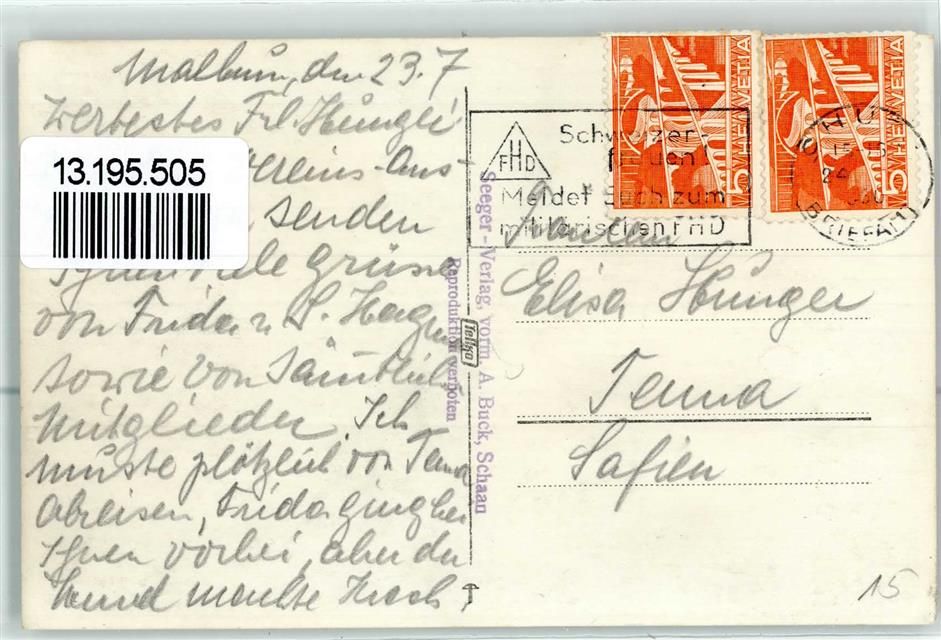 Malbun, den 23.7
Wertestes Frl. Hunger
13.195.505
ereins-Aus-
senden
Ihnen viele Grüsse
von Frida u. S. Hagm
sowie von sämtlich
Mitglieder. Ich
musste plötzlich von Tenna
abreisen, Frida ging bei
Ihnen vorbei, aber der
Hund machte Krach.
Seeger-Verlag, vorm. A. Buck, Schaan
Reproduktion verboten
Tellko
HELVETIA
5
HELVETIA
5
FHD
Schweizer-
Meldet Euch zum
militärischen FHD
CHUR
24
(BRIEFAT)
Fräulein
Elisa Hunger
Tenna
Safien
15